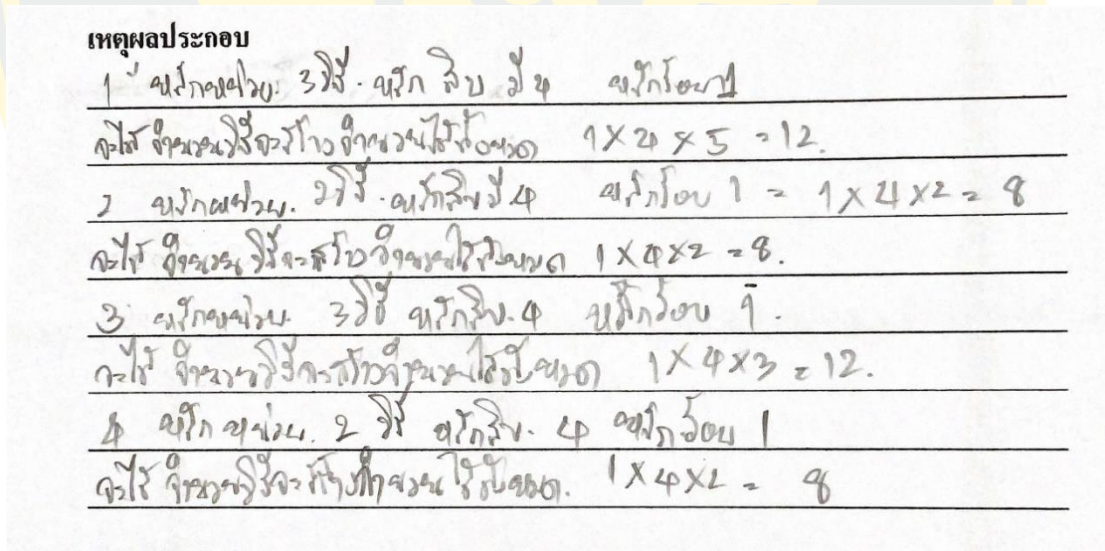 เหตุผลประกอบ
1 หลักหน่วย. 3วิธี. หลัก สิบ มี 4 หลักร้อย 1
จะได้ จำนวนวิธีจะสร้าง จำนวนได้ทั้งหมด 1 X 4 X 5 = 12.
2 หลักหน่วย. 2วิธี. หลักสิบมี 4 หลักร้อย 1 = 1 X 4 X 2 = 8
จะได้ จำนวน วิธีจะสร้าง จำนวนได้ทั้งหมด 1 X 4 X 2 = 8.
3 หลักหน่วย. 3วิธี หลักสิบ. 4 หลักร้อย 1.
จะได้ จำนวนวิธีจะสร้างจำนวนได้ทั้งหมด 1 X 4 X 3 = 12.
4 หลัก หน่วย. 2 วิธี หลักสิบ. 4 หลัก ร้อย 1
จะได้ จำนวนวิธีจะสร้างจำนวน ได้ทั้งหมด. 1 X 4 X 2 = 8